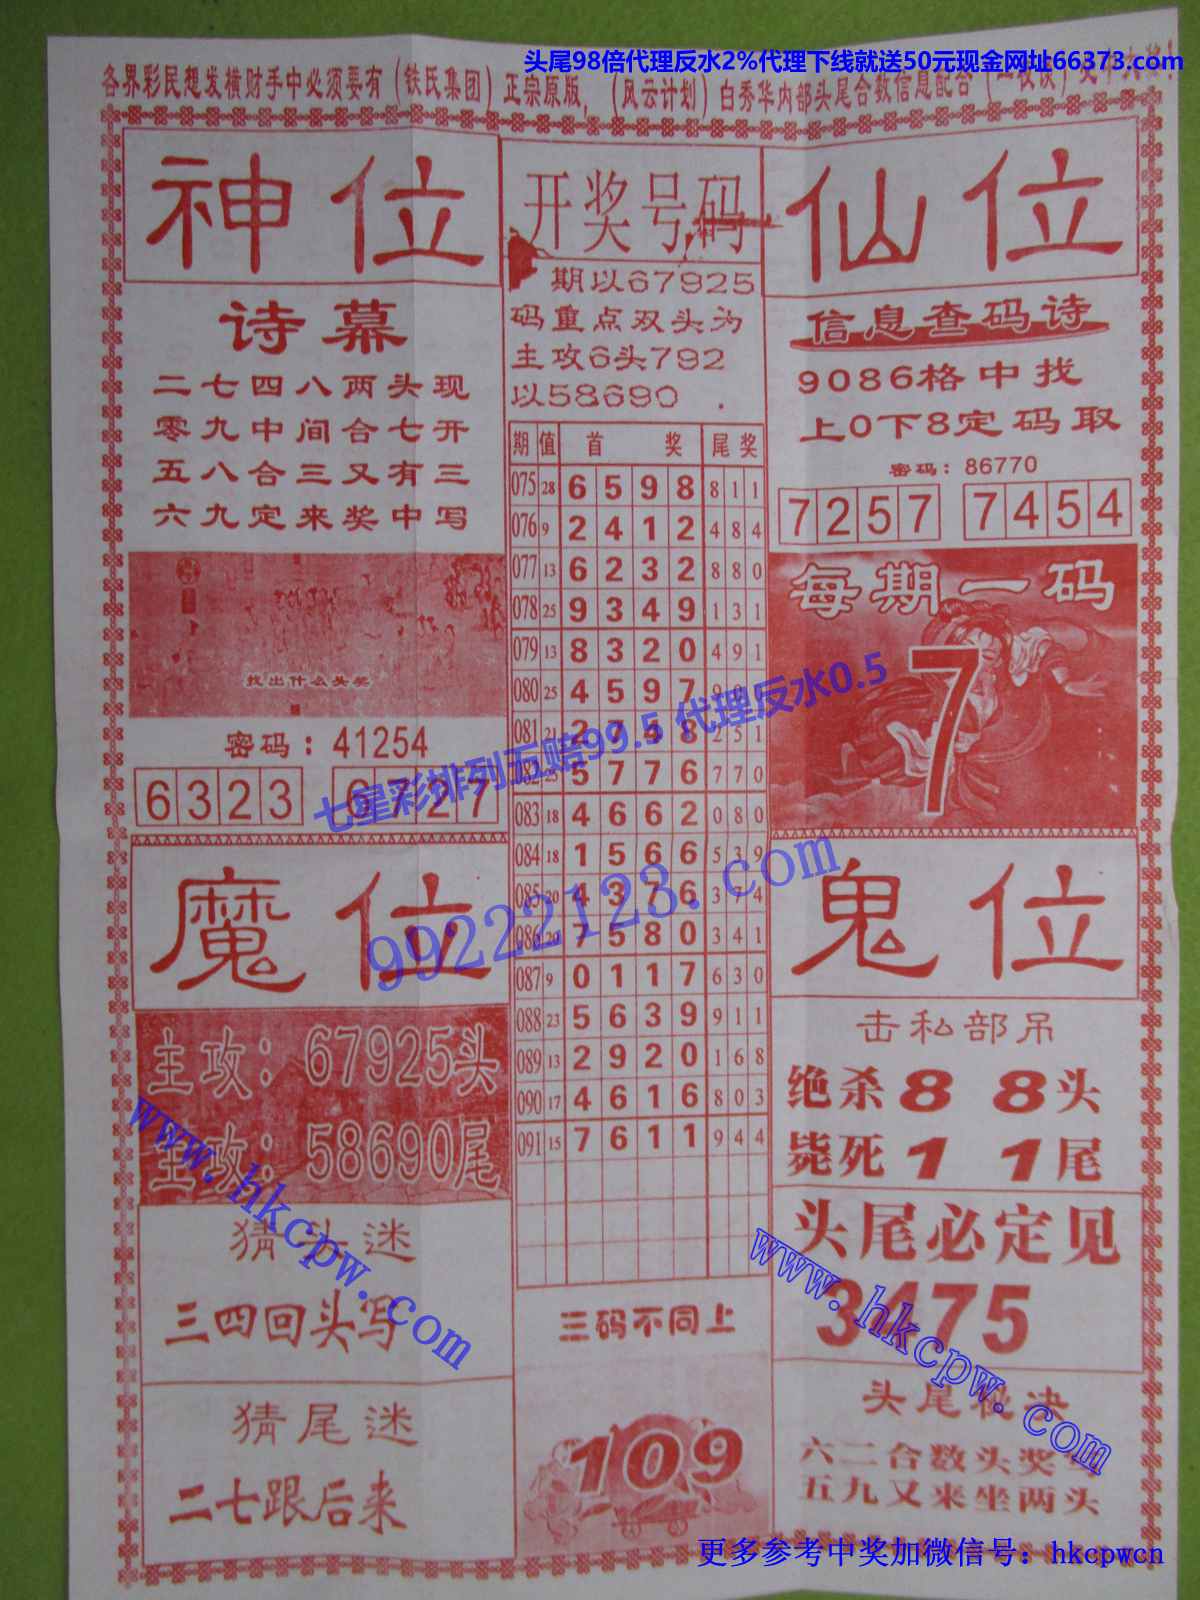 头尾98倍代理反水2%代理下线就送50元现金网址66373.com
各界彩民想发横财手中必须要有（铁氏集团）正宗原版，（风云计划）白秀华内部头尾合数信息配合
神位
诗幕
二七四八两头现
零九中间合七开
五八合三又有三
六九定来奖中写
找出什么头奖
密码：41254
6323 6727
开奖号码
期以67925
码重点双头为
主攻6头792
以58690．
期 值 首 奖 尾 奖
075 28 6 5 9 8 8 1 1
076 9 2 4 1 2 4 8 4
077 13 6 2 3 2 8 8 0
078 25 9 3 4 9 1 3 1
079 13 8 3 2 0 4 9 1
080 25 4 5 9 7
081 21 2 7 4 8 2 5 1
082 25 5 7 7 6 7 7 0
083 18 4 6 6 2 0 8 0
084 18 1 5 6 6 5 3 9
085 20 4 3 7 6 3 7 4
086 20 7 5 8 0 3 4 1
087 9 0 1 1 7 6 3 0
088 23 5 6 3 9 9 1 1
089 13 2 9 2 0 1 6 8
090 17 4 6 1 6 8 0 3
091 15 7 6 1 1 9 4 4
三码不同上
109
仙位
信息查码诗
9086格中找
上0下8定码取
密码：86770
7257 7454
每期一码
7
七星彩排列五赔99.5 代理反水0.5
99222123.com
魔位
主攻：67925头
主攻：58690尾
www.hkcpw.com
猜头迷
三四回头写
猜尾迷
二七跟后来
鬼位
击私部吊
绝杀8 8头
毙死1 1尾
头尾必定见
3475
www.hkcpw.com
头尾秘决
六二合数头奖写
五九又来坐两头
更多参考中奖加微信号：hkcpwcn